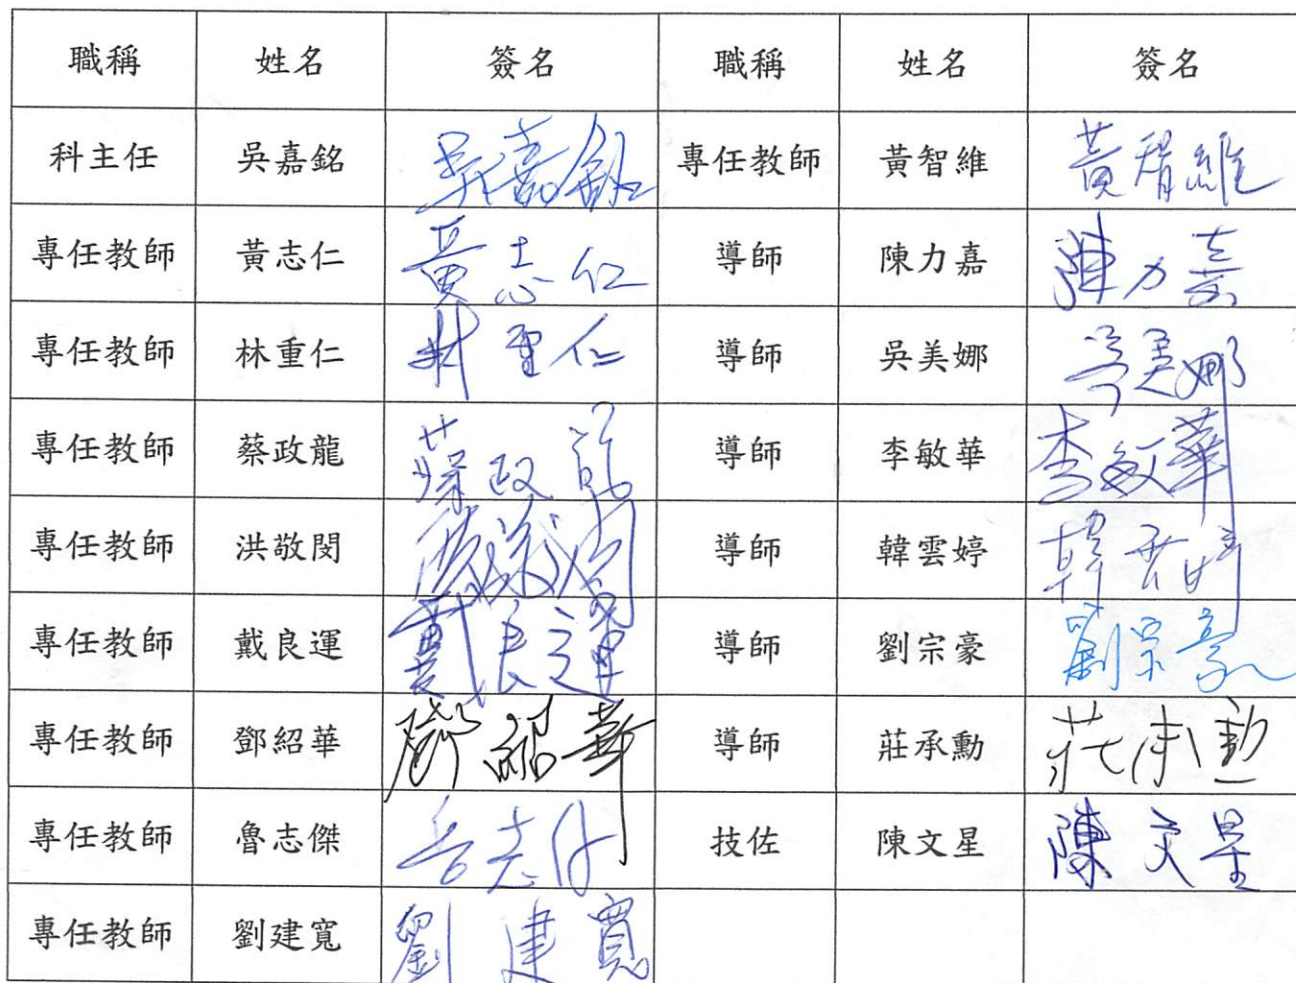 職稱 姓名 簽名 職稱 姓名 簽名
科主任 吳嘉銘 吳嘉銘 專任教師 黃智維 黃智維
專任教師 黃志仁 黃志仁 導師 陳力嘉 陳力嘉
專任教師 林重仁 林重仁 導師 吳美娜 吳美娜
專任教師 蔡政龍 蔡政龍 導師 李敏華 李敏華
專任教師 洪敬閔 導師 韓雲婷 韓雲婷
專任教師 戴良運 戴良運 導師 劉宗豪 劉宗豪
專任教師 鄧紹華 鄧紹華 導師 莊承勳 莊承勳
專任教師 魯志傑 技佐 陳文星 陳文星
專任教師 劉建寬 劉建寬